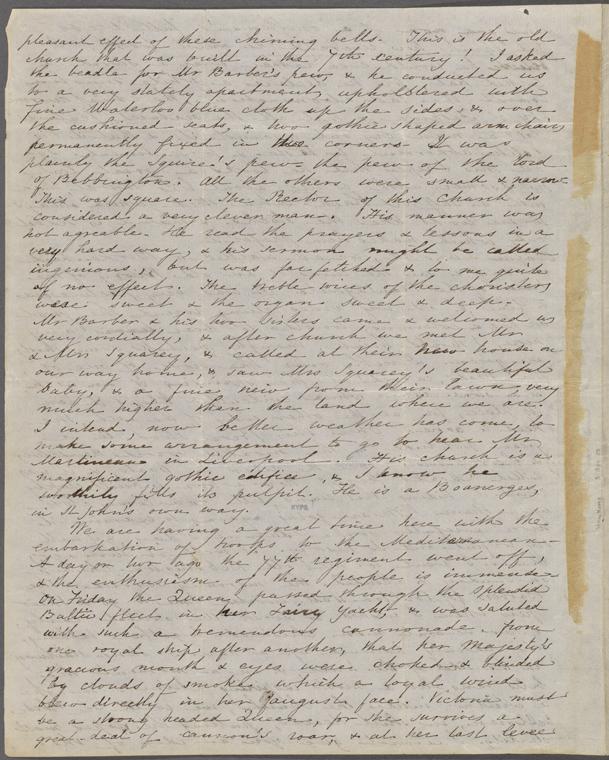 pleasant effect of these chiming bells. This is the old
church that was built in the 7th century! I asked
the beadle for Mr Barber's pew, & he conducted us
to a very stately apartment, upholstered with
fine Waterloo blue cloth up the sides & over
the cushioned seats, & two gothic shaped arm chairs
permanently fixed in the corners. It was
plainly the Squire's pew - the pew of the Lord
of Bebbington. All the others were small & narrow.
This was square. The Rector of this church is
considered a very clever man. His manner was
not agreable. He read the prayers & lessons in a
very hard way, & his sermon might be called
ingenious, but was farfetched & to me quite
of no effect. The treble voices of the choristers
were sweet & the organ sweet & deep.
Mr Barber & his two sisters came & welcomed us
very cordially, & after church we met Mr
& Mrs Squarey, & called at their new house on
our way home, & saw Mrs Squarey's beautiful
baby, & a fine view from their lawn, very
much higher than the land where we are.
I intend, now better weather has come, to
make some arrangement to go to hear Mr
Martineau in Liverpool. His church is a
magnificent gothic edifice, & I know he
worthily fills its pulpit. He is a Boanerges,
in St John's own way.
NYPL
We are having a great time here with the
embarkation of troops to the Mediterranean -
A day or two ago the 77th regiment went off,
& the enthusiasm of the people is immense.
On Friday the Queen passed through the splendid
Baltic fleet in her Fairy Yacht, & was saluted
with such a tremendous cannonade from
one royal ship after another, that her Majesty's
gracious mouth & eyes were choked & blinded
by clouds of smoke, which a loyal wind
blew directly in her august face. Victoria must
be a strong headed Queen, for she survives a
great deal of cannon's roar, & at her last levee